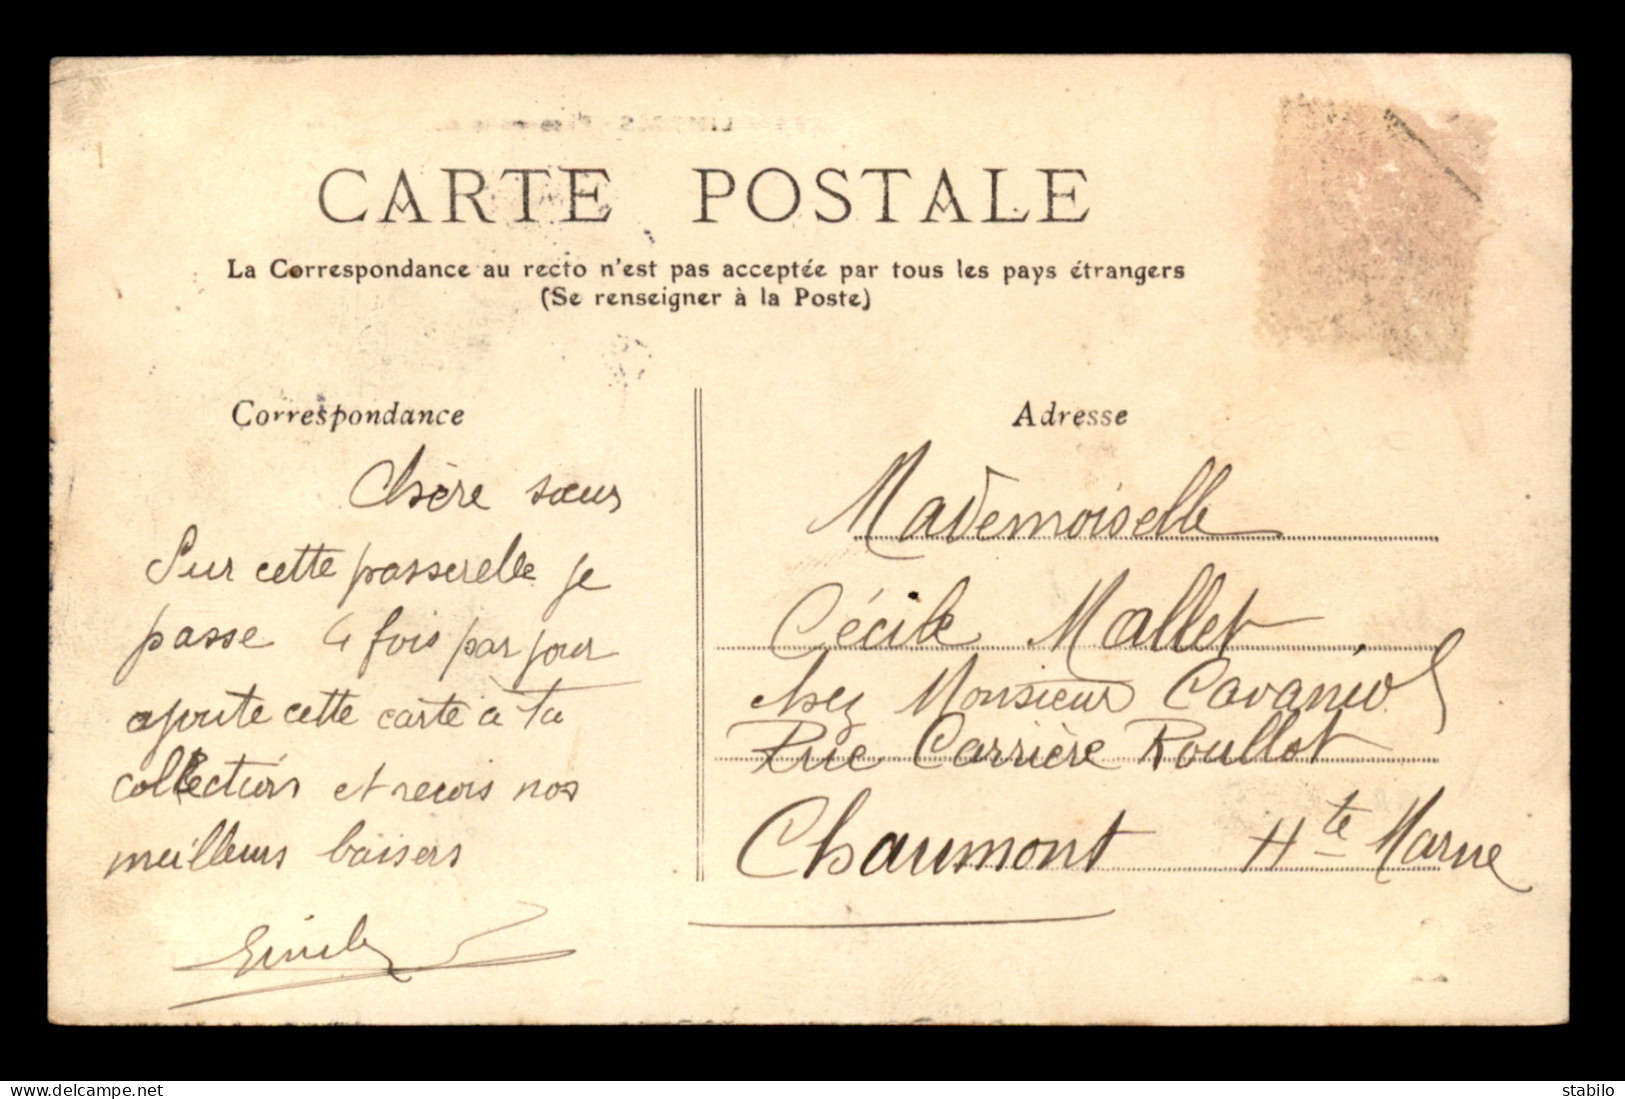 CARTE POSTALE
La Correspondance au recto n'est pas acceptée par tous les pays étrangers
(Se renseigner à la Poste)
Correspondance
Chère sœur
Sur cette passerelle je
passe 4 fois par jour
ajoute cette carte à ta
collection et reçois nos
meilleurs baisers
Emile
Adresse
Mademoiselle
Cécile Mallet
chez Monsieur Cavaniol
Rue Carrière Roullot
Chaumont Hte Marne
stabilo
delcampe.net